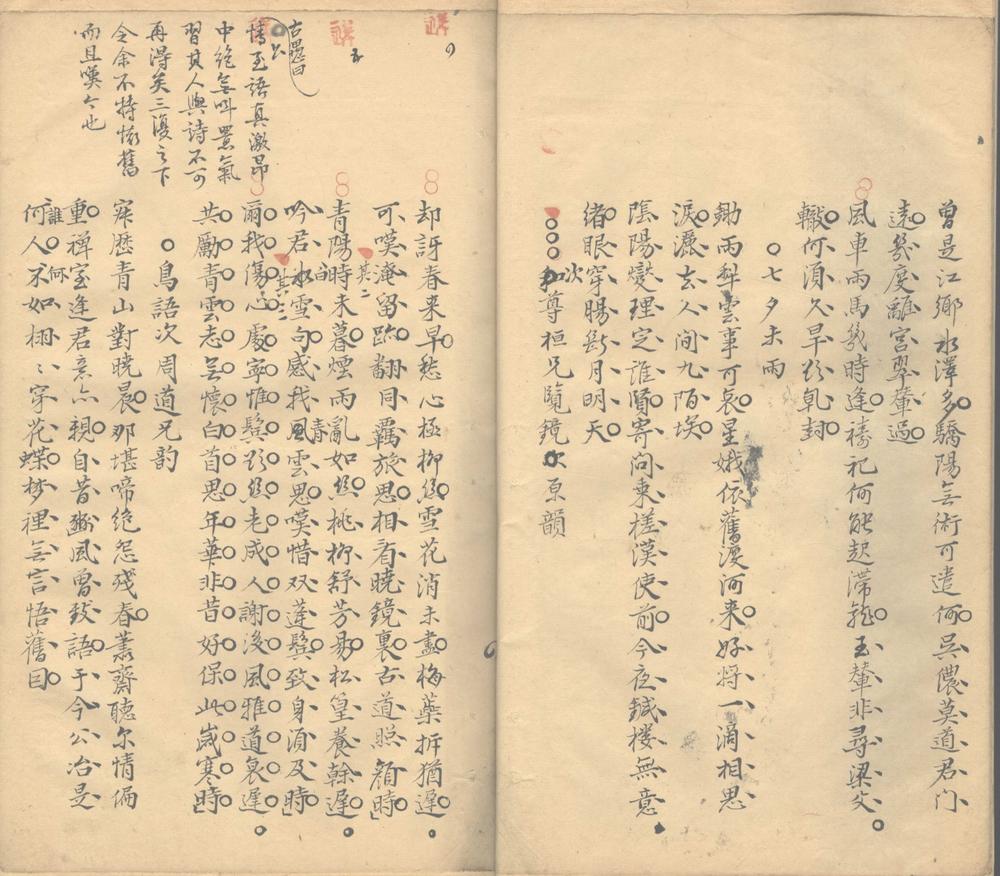 曾是江鄉水澤多驕陽無術可遣何吳儂莫道君门
遠幾度離宮翠輦過
風車雨馬幾時逢禱祀何能起滯龍玉輦非尋梁父
轍何須久旱欤乾封
七夕未雨
鋤雨犁雲事可哀星娥依舊渡河来好將一滴相思
淚灑去人间九陌埃
陰陽燮理定誰賢寄问東槎漢使前今夜鍼楼無意
緒眼穿腸斷月明天
和次尊桓兄覽鏡次原韻
却訝春来早愁心極柳絲雪花消未盡梅蘂拆猶遲
可嘆淹留臨翻同羈旅思相看曉鏡裏古道照顏時
其二
青陽時未暮煙雨亂如絲桃柳舒芳易松篁養榦遲
吟君冰雪句感我風雲思嘆惜双蓬鬢致身須及時
其三
爾我傷心處寧惟鬢欤絲老成人謝後風雅道衰遲
共勵青雲志無懷白首思年華非昔好保此歲寒時
鳥語次周道兄韵
寂歷青山對曉晨那堪啼絶怨殘春蕭齋聽尔情偏
重禪室逢君意亦親自昔豳風曾鼓語于今公冶是
何人不如栩〻穿花蝶梦裡無言悟舊因
誰
何
古愚曰
博至語真激昂
中絶無叫嚣氣
習其人與詩不可
再得矣三復之下
令余不特懷舊
而且嘆今也